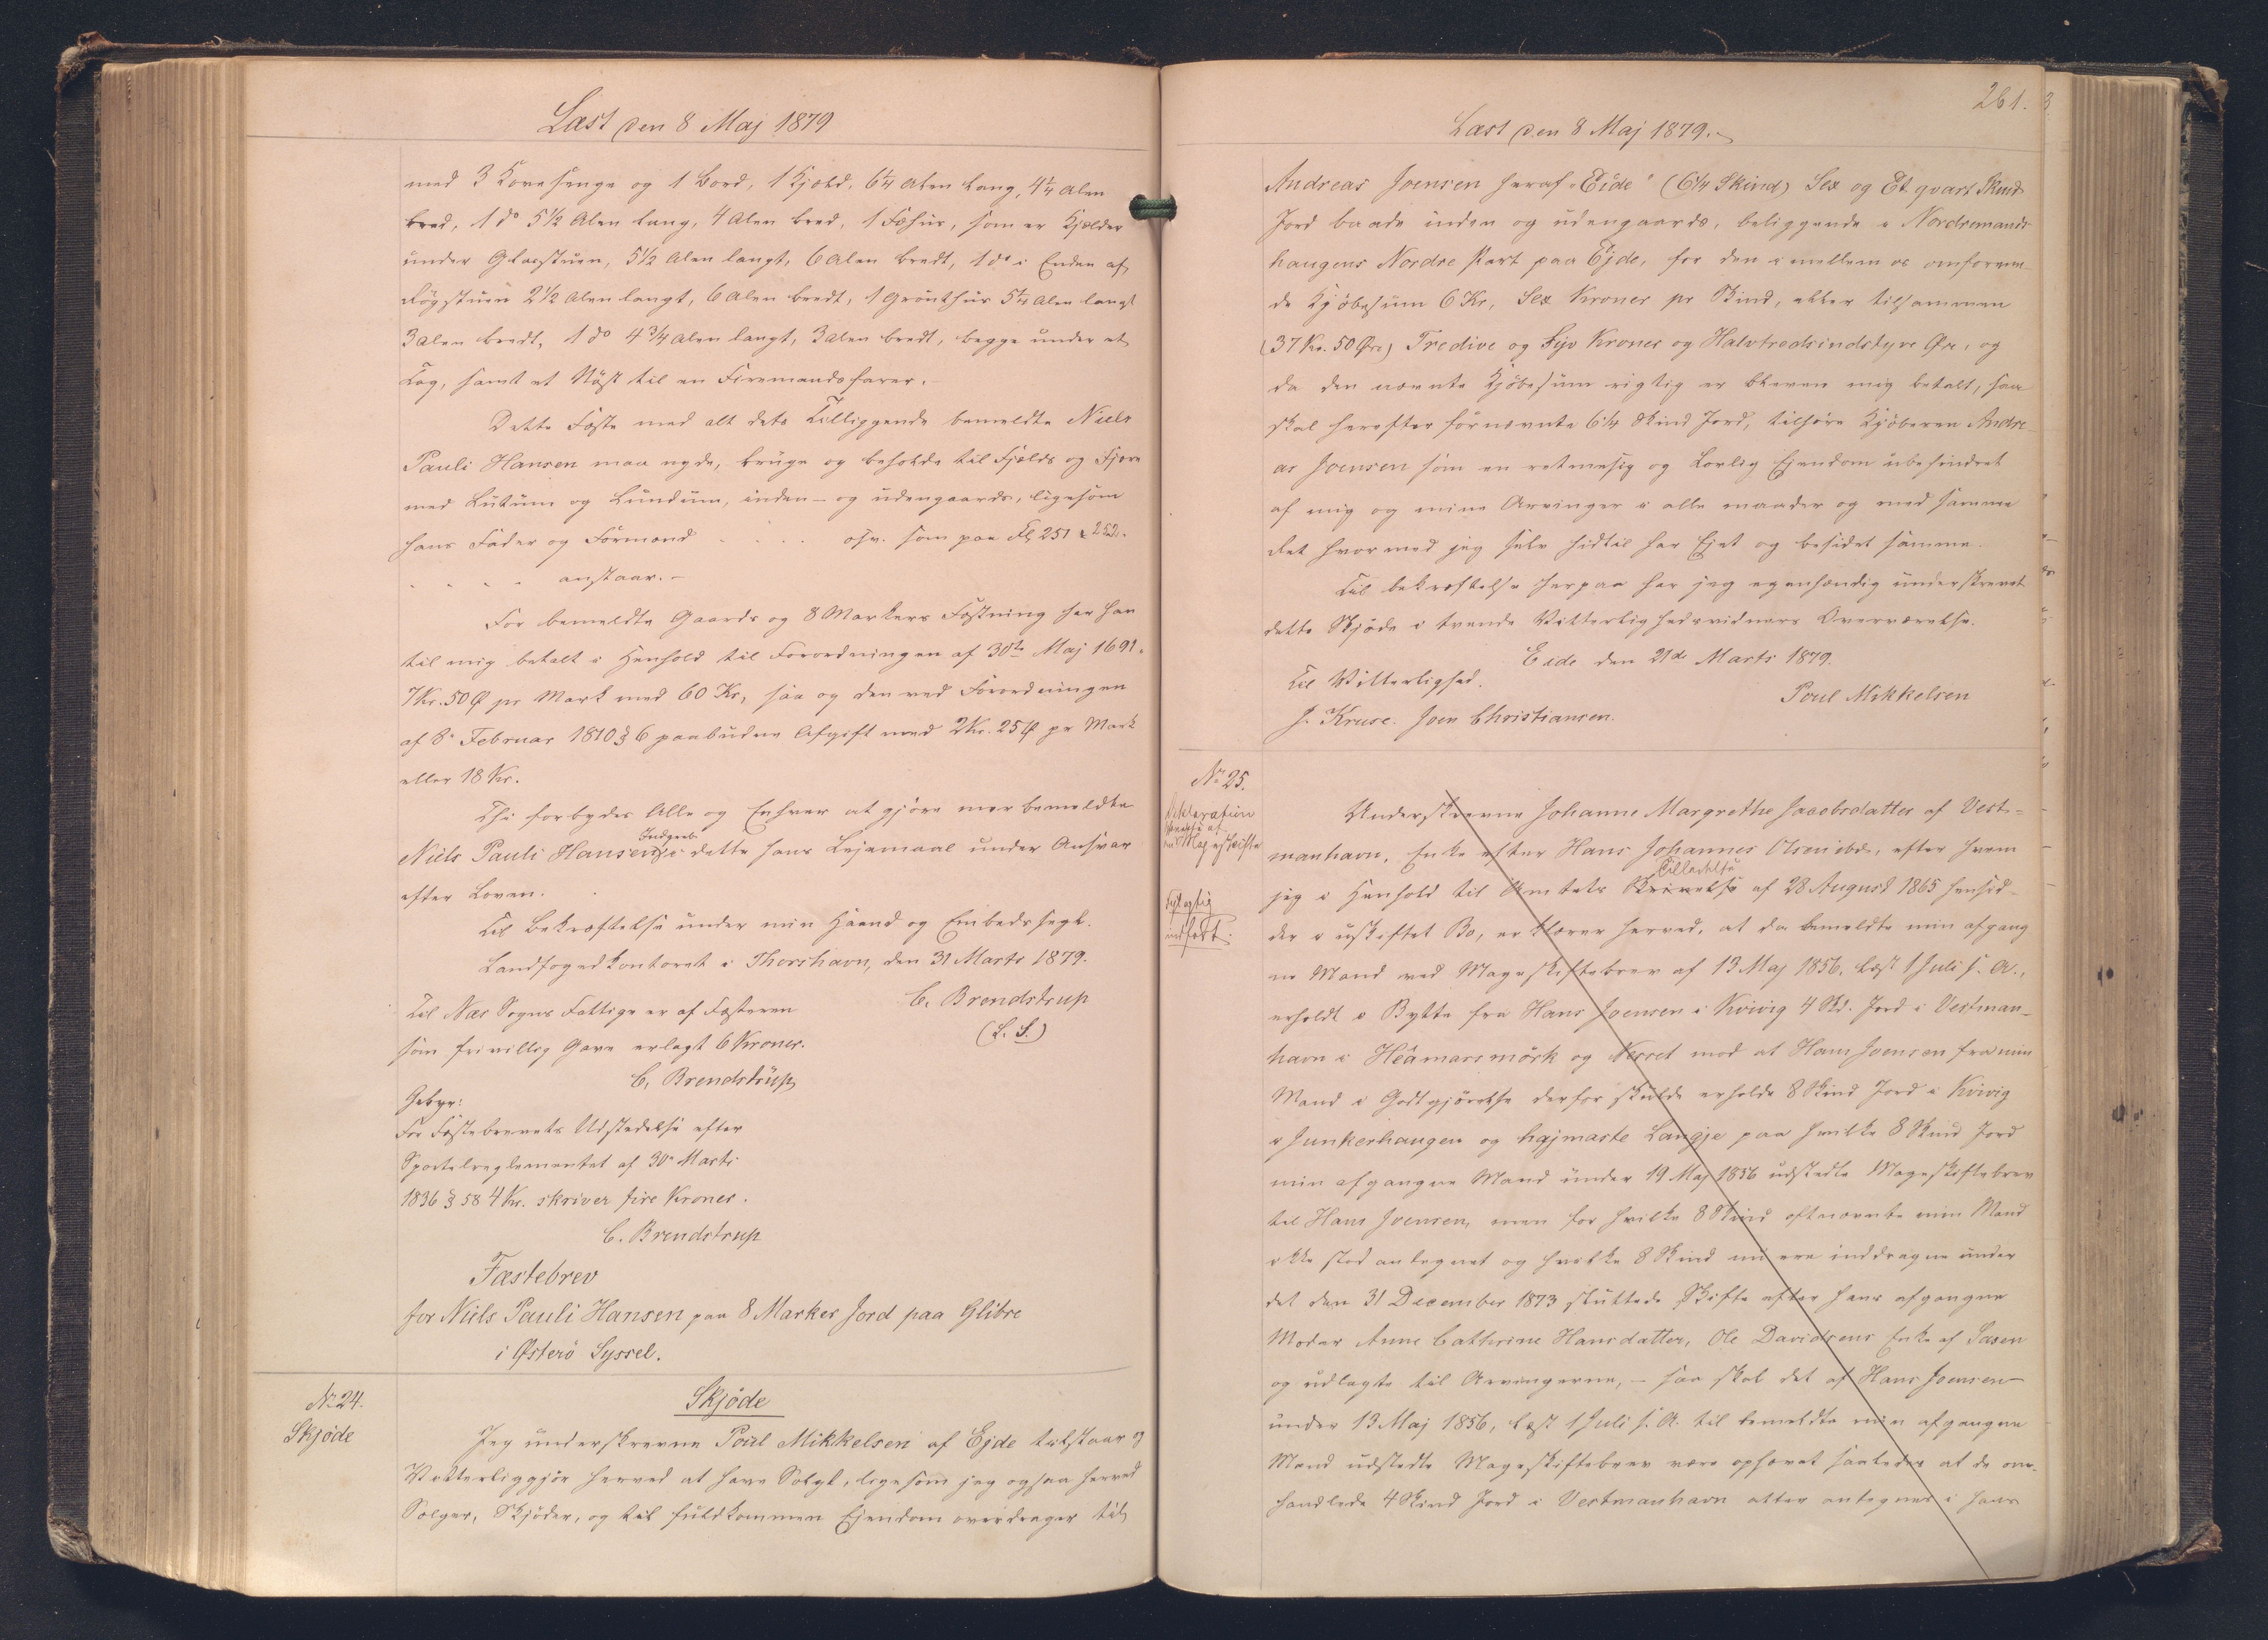 Læst den 8 Maj 1879
med 3 Kovesenge og 1 Bord, 1 Kjøld, 6 1/4 Alen lang, 4 1/4 Alen
bred, 1 do 5 1/2 Alen lang, 4 Alen bred, 1 Fæhus, som er Kjelder
under Glasstuen, 5 1/2 Alen langt, 6 Alen bredt, 1 do i Enden af
Røgstuen 2 1/2 Alen langt, 6 Alen bredt, 1 Gronthus 5 1/4 Alen langt
3 Alen bredt, 1 do 4 3/4 Alen langt, 3 Alen bredt, begge under et
Tag, samt et Nøst til en Firemandsfarer.
Dette Fæste med alt dets Tilliggende bemeldte Niels
Pauli Hansen maa nyde, bruge og beholde til Fjelds og Fjære
med Lutum og Lundum, inden- og udengaards, ligesom
hans Fader og Formand . . . . osv. som paa Fol. 251 & 252.
. . . . anstaar.-
For bemeldte Gaards og 8 Markers Fæstning har han
til mig betalt i Henhold til Forordningen af 30te Maj 1691.
7 Kr. 50 Ø pr Mark med 60 Kr, saa og den ved Forordningen
af 8de Februar 1810 § 6 paabudne Afgift med 2 Kr. 25 Ø pr Mark
eller 18 Kr.
Thi forbydes Alle og Enhver at gjøre meerbemeldte
Indgreb
Niels Pauli Hansen i dette hans Lejemaal under Ansvar
efter Loven.
Til Bekræftelse under min Haand og Embedssegl.
Landfogedkontoret i Thorshavn, den 31 Marts 1879.
C. Brendstrup
(L. S.)
Til Næs Sogns Fattige er af Fæsteren
som frivillig Gave erlagt 6 Kroner.
C. Brendstrup
Gebyr:
For Fæstebrevets Udstedelse efter
Sportelreglementet af 30te Marts
1836 § 58 4 Kr. skriver fire Kroner.
C. Brendstrup
Fæstebrev
for Niels Pauli Hansen paa 8 Marker Jord paa Glibre
i Østerø Syssel.
No 24.
Skjöde
Skjöde
Jeg underskrevne Poul Mikkelsen af Ejde tilstaar og
Vitterliggjør herved at have Solgt, ligesom jeg ogsaa herved
Sælger, Skjøder, og til fuldkommen Ejendom overdrager til
261.
Læst den 8 Maj 1879.
Andreas Joensen heraf "Eide" (6 1/4 Skind) Sex og Et qvart Skind
Jord baade inden og udengaards, beliggende i Nordremands
haugens Nordre Part paa Ejde, for den imellem os omforene
de Kjøbesum 6 Kr, Sex Kroner pr Skind, eller tilsammen
(37 Kr. 50 Øre) Tredive og Syv Kroner og Halvtredsindstyve Øre, og
da den nævnte Kjøbesum rigtig er bleven mig betalt, saa
skal herefter førnævnte 6 1/4 Skind Jord, tilhøre Kjøberen Andre-
as Joensen som en retmæsig og Lovlig Ejendom ubehindret
af mig og mine Arvinger i alle maader og med samme
Ret hvormed jeg selv hidtil har Ejet og besidet samme.
Til bekræftelse herpaa har jeg egenhændig underskrevet
dette Skjøde i tvende Vitterlighedsvidners Overværelse.
Eide den 21de Marts 1879.
Til Vitterlighed.
Poul Mikkelsen
J. Kruse. Joen Christiansen.
No 25.
Deklaration
Mageskifte
Urigtig
indført.
Underskrevne Johanne Margrethe Jacobsdatter af Vest-
manhavn, Enke efter Hans Johannes Olsen ibd., efter hvem
Tilladelse
jeg i Henhold til Amtets Skrivelse af 28 August 1865 hensid-
der i uskiftet Bo, erklærer herved, at da bemeldte min afgang
ne Mand ved Mageskiftebrev af 13 Maj 1856, læst 1 Juli s. A.,
erholdt i Bytte fra Hans Joensen i Kvivig 4 Skd. Jord i Vestman-
havn i Heamarsmörk og Nesset mod at Hans Joensen fra min
Mand i Godtgjørelse derfor skulde erholde 8 Skind Jord i Kvivig
i Junkerhaugen og hajmaste Langje paa hvilke 8 Skind Jord
min afgangne Mand under 19 Maj 1856 udstedte Mageskiftebrev
til Hans Joensen, men for hvilke 8 Skind oftnævnte min Mand
ikke stod antegnet og hvilke 8 Skind nu ere inddragne under
det den 31 December 1873 sluttede Skifte efter hans afgangne
Moder Anne Cathrine Hansdatter, Ole Davidsens Enke af Saxen
og udlagte til Arvingerne, - saa skal det af Hans Joensen
under 13 Maj 1856, læst 1 Juli s. A. til bemeldte min afgangne
Mand udstedte Mageskiftebrev være ophævet saaledes at de om-
handlede 4 Skind Jord i Vestmanhavn atter antegnes i hans